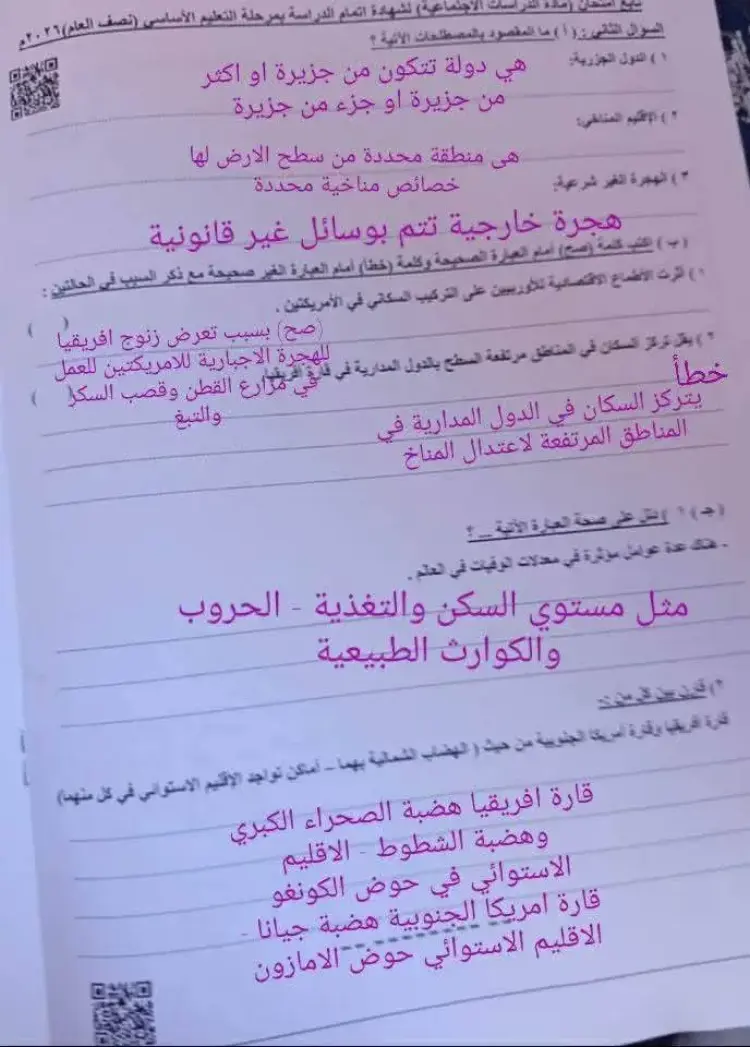 تابع امتحان (مادة الدراسات الاجتماعية) لشهادة اتمام الدراسة بمرحلة التعليم الأساسي (نصف العام) ٢٠٢٦م
السؤال الثاني: ( أ ) ما المقصود بالمصطلحات الآتية ؟
١ ) الدول الجزرية:
هي دولة تتكون من جزيرة او اكثر
من جزيرة او جزء من جزيرة
٢ ) الإقليم المناخي:
هى منطقة محددة من سطح الارض لها
خصائص مناخية محددة
٣ ) الهجرة الغير شرعية:
هجرة خارجية تتم بوسائل غير قانونية
( ب ) اكتب كلمة (صح) أمام العبارة الصحيحة وكلمة (خطأ) أمام العبارة الغير صحيحة مع ذكر السبب في الحالتين :
١ ) أثرت الأطماع الاقتصادية للأوربيين على التركيب السكاني في الأمريكتين .
( )
(صح) بسبب تعرض زنوج افريقيا
للهجرة الاجبارية للامريكتين للعمل
في مزارع القطن وقصب السكر
والتبغ
٢ ) يقل تركز السكان في المناطق مرتفعة السطح بالدول المدارية في قارة أفريقيا.
( )
خطأ
يتركز السكان في الدول المدارية في
المناطق المرتفعة لاعتدال المناخ
( جـ ) ١ ) دلل على صحة العبارة الآتية ... ؟
- هناك عدة عوامل مؤثرة في معدلات الوفيات في العالم .
مثل مستوي السكن والتغذية - الحروب
والكوارث الطبيعية
٢) قارن بين كل من :-
قارة أفريقيا وقارة أمريكا الجنوبية من حيث ( الهضاب الشمالية بهما – أماكن تواجد الإقليم الاستوائي في كل منهما)
قارة افريقيا هضبة الصحراء الكبري
وهضبة الشطوط - الاقليم
الاستوائي في حوض الكونغو
قارة امريكا الجنوبية هضبة جيانا -
الاقليم الاستوائي حوض الامازون